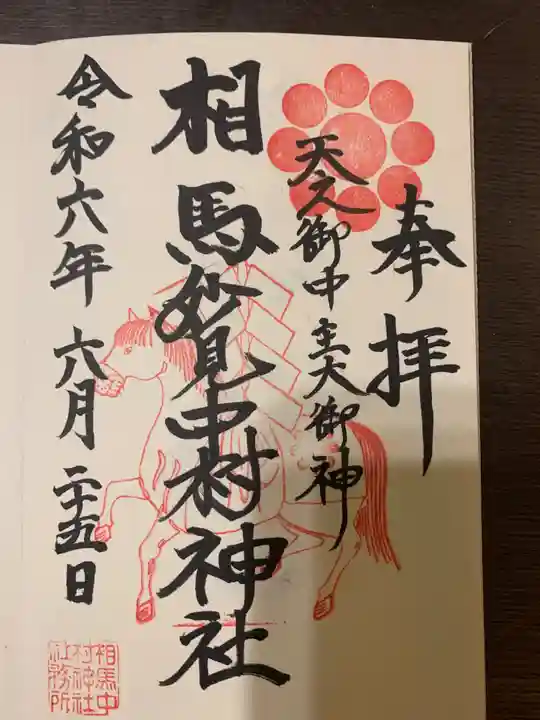 奉拝
天之御中主大御神
相馬妙見中村神社
令和六年六月二十五日
相馬中
村神社
社務所